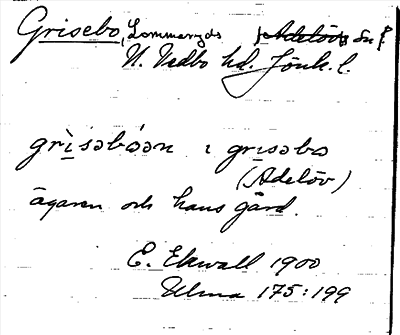 Grisebo, Lommaryds ~~Adelövs~~ sn
N. Vedbo hd. Jönk. l.
grìsəbóən ı grısəbo
(Adelöv)
ägaren och hans gård.
E. Ekwall 1900
Ulma 175:199